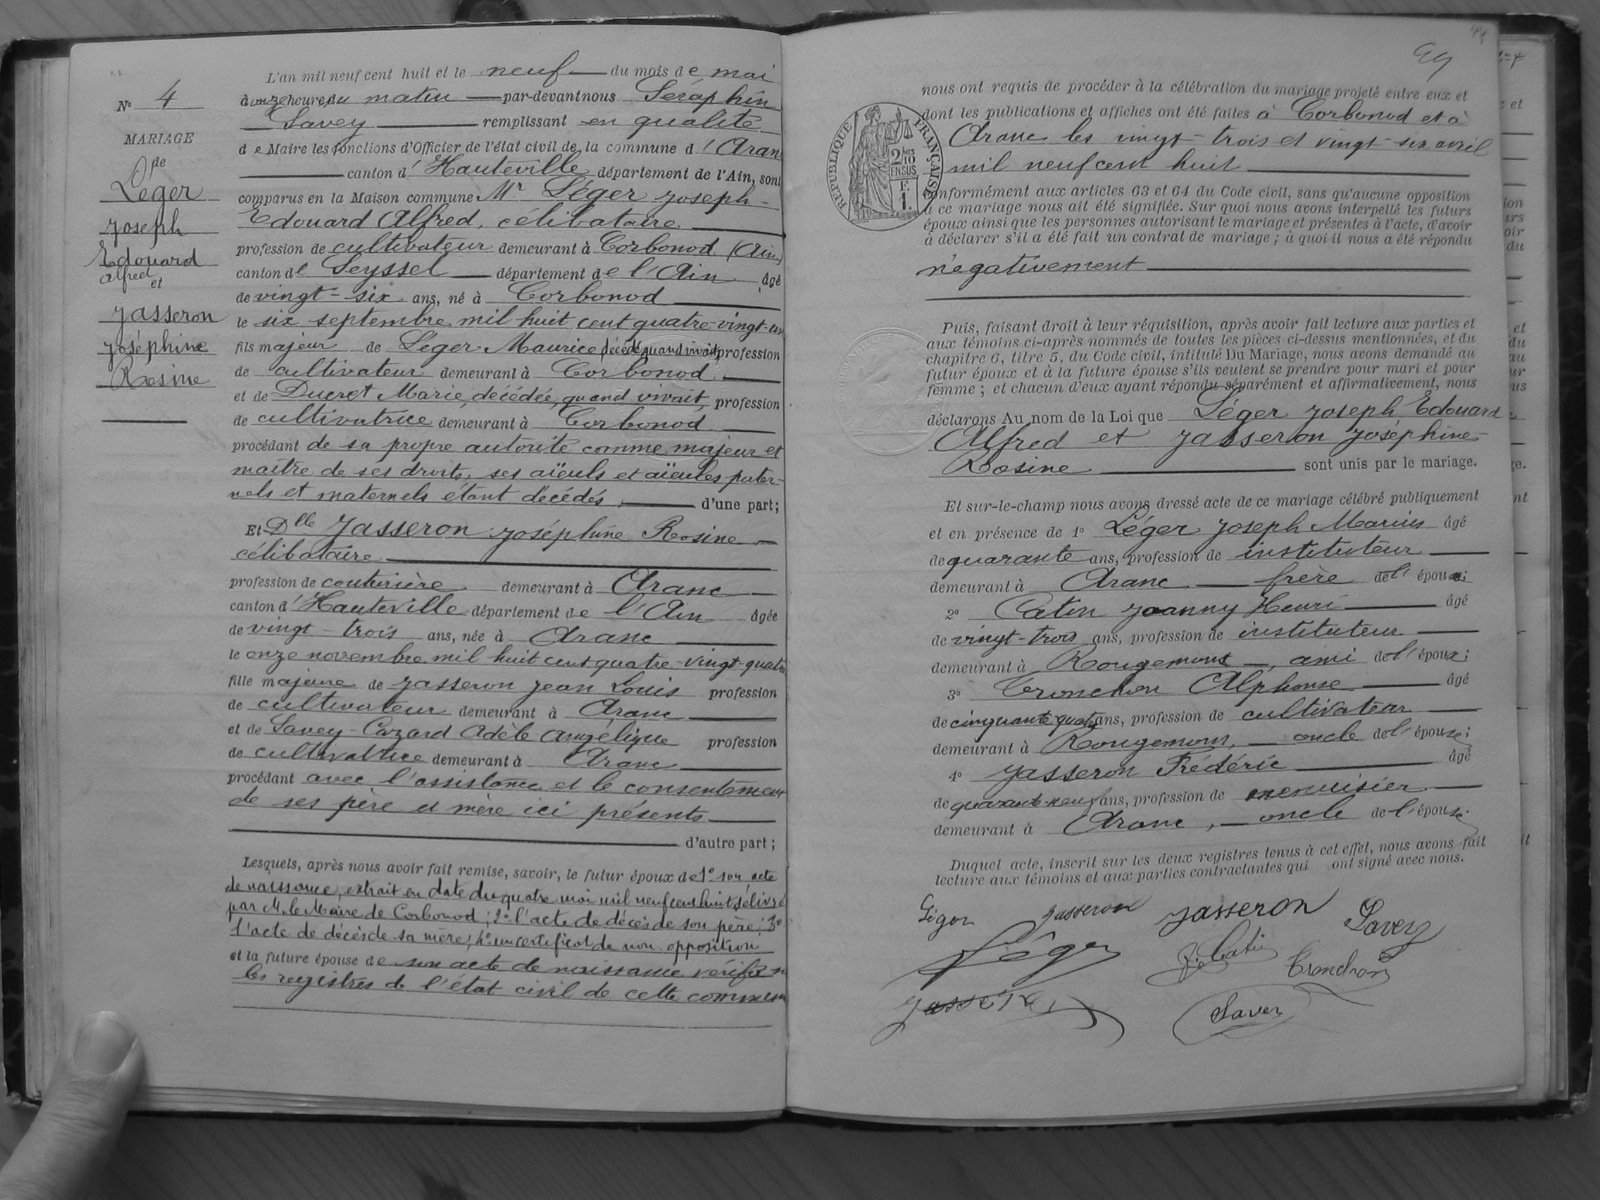 N° 4
MARIAGE
de
Léger
Joseph
Edouard
Alfred
et
Jasseron
Joséphine
Rosine
L'an mil neuf cent huit et le neuf du mois de mai
à onze heures du matin par-devant nous Séraphin
Savey remplissant en qualité
de Maire les fonctions d'Officier de l'état civil de la commune d'Aranc
canton d'Hauteville département de l'Ain, sont
comparus en la Maison commune Mr Léger Joseph-
Edouard Alfred, célibataire
profession de cultivateur demeurant à Corbonod (Ain)
canton de Seyssel département de l'Ain âgé
de vingt-six ans, né à Corbonod
le six septembre mil huit cent quatre-vingt-un
fils majeur de Léger Maurice décédé quand vivait profession
de cultivateur demeurant à Corbonod
et de Ducret Marie, décédée, quand vivait, profession
de cultivatrice demeurant à Corbonod
procédant de sa propre autorité comme majeur et
maître de ses droits, ses aïeuls et aïeules pater-
nels et maternels étant décédés d'une part;
Et Dlle Jasseron Joséphine Rosine
célibataire
profession de couturière demeurant à Aranc
canton d'Hauteville département de l'Ain âgée
de vingt-trois ans, née à Aranc
le onze novembre mil huit cent quatre-vingt-quatre
fille majeure de Jasseron Jean Louis profession
de cultivateur demeurant à Aranc
et de Savey-Cazard Adèle Angélique profession
de cultivatrice demeurant à Aranc
procédant avec l'assistance et le consentement
de ses père et mère ici présents
d'autre part;
Lesquels, après nous avoir fait remise, savoir, le futur époux de 1° son acte
de naissance, extrait en date du quatre mai mil neuf cent huit, délivré
par M. le Maire de Corbonod; 2° l'acte de décès de son père; 3°
l'acte de décès de sa mère; 4° un certificat de non opposition
et la future épouse de son acte de naissance vérifié sur
les registres de l'état civil de cette commune
nous ont requis de procéder à la célébration du mariage projeté entre eux et
dont les publications et affiches ont été faites à Corbonod et à
Aranc les vingt-trois et vingt-six avril
mil neuf cent huit
conformément aux articles 63 et 64 du Code civil, sans qu'aucune opposition
à ce mariage nous ait été signifiée. Sur quoi nous avons interpellé les futurs
époux ainsi que les personnes autorisant le mariage et présentes à l'acte, d'avoir
à déclarer s'il a été fait un contrat de mariage; à quoi il nous a été répondu
négativement
RÉPUBLIQUE FRANÇAISE
Puis, faisant droit à leur réquisition, après avoir fait lecture aux parties et
aux témoins ci-après nommés de toutes les pièces ci-dessus mentionnées, et du
chapitre 6, titre 5, du Code civil, intitulé Du Mariage, nous avons demandé au
futur époux et à la future épouse s'ils veulent se prendre pour mari et pour
femme; et chacun d'eux ayant répondu séparément et affirmativement, nous
déclarons Au nom de la Loi que Léger Joseph Edouard
Alfred et Jasseron Joséphine-
Rosine sont unis par le mariage.
Et sur-le-champ nous avons dressé acte de ce mariage célébré publiquement
et en présence de 1° Léger Joseph Marius âgé
de quarante ans, profession de instituteur
demeurant à Aranc frère de l'époux;
2° Catin Joanny Henri âgé
de vingt-trois ans, profession de instituteur
demeurant à Rougemont, ami de l'époux;
3° Tronchon Alphonse âgé
de cinquante quatre ans, profession de cultivateur
demeurant à Rougemont, oncle de l'épouse;
4° Jasseron Frédéric âgé
de quarante-neuf ans, profession de menuisier
demeurant à Aranc, oncle de l'épouse.
Duquel acte, inscrit sur les deux registres tenus à cet effet, nous avons fait
lecture aux témoins et aux parties contractantes qui ont signé avec nous.
Léger Jasseron Jasseron Savey
Léger Catin Tronchon
Jasseron Savey